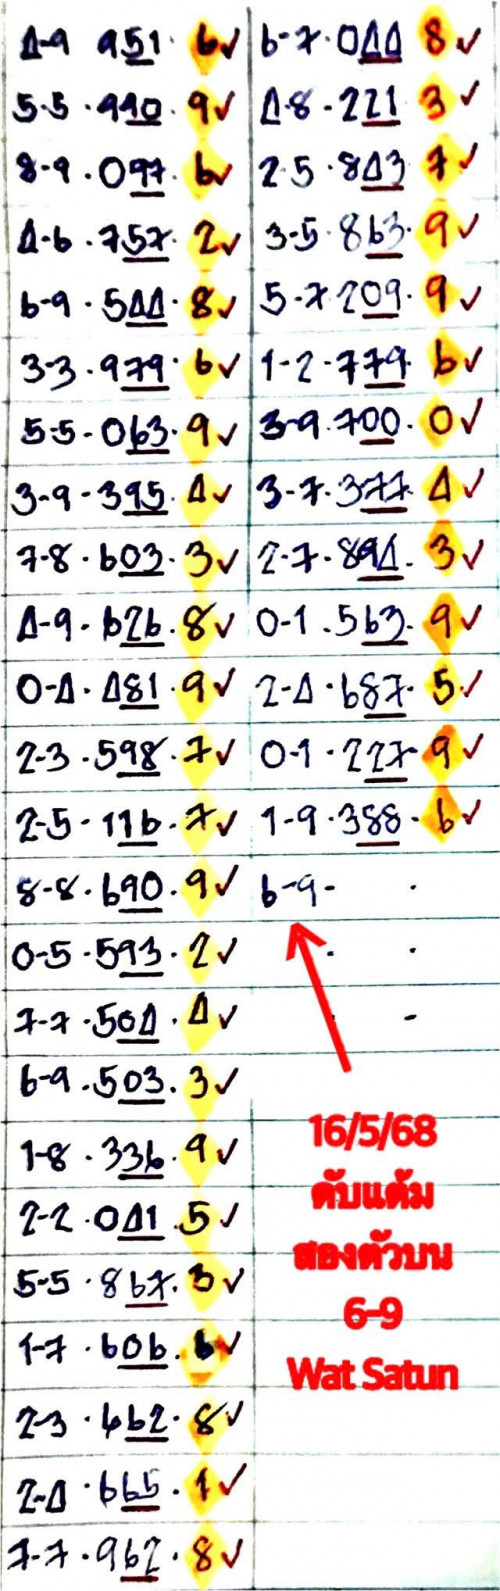 4-9 951 · 6 ✓
5-5 · 990 · 9 ✓
8-9 · 097 · 6 ✓
4-6 · 757 · 2 ✓
6-9 · 544 · 8 ✓
3-3 · 979 · 6 ✓
5-5 · 063 · 9 ✓
3-9 - 395 · 4 ✓
7-8 · 603 · 3 ✓
4-9 · 626 · 8 ✓
0-4 · 481 · 9 ✓
2-3 · 598 · 7 ✓
2-5 · 116 · 7 ✓
8-8 · 690 · 9 ✓
0-5 · 593 · 2 ✓
7-7 · 504 · 4 ✓
6-9 · 503 · 3 ✓
1-8 · 336 · 9 ✓
2-2 · 041 · 5 ✓
5-5 · 867 · 3 ✓
1-7 · 606 · 6 ✓
2-3 · 662 · 8 ✓
2-4 · 665 · 1 ✓
7-7 · 962 · 8 ✓
6-7 · 044 8 ✓
4-8 - 221 3 ✓
2-5 · 843 7 ✓
3-5 · 863 · 9 ✓
5-7 209 · 9 ✓
1-2 · 779 · 6 ✓
3-9 · 700 · 0 ✓
3-7 · 377 4 ✓
2-7 · 894 · 3 ✓
0-1 · 563 · 9 ✓
2-4 · 687 · 5 ✓
0-1 · 227 9 ✓
1-9 · 388 · 6 ✓
6-9-
16/5/68
ดับแต้ม
สองตัวบน
6-9
Wat Satun